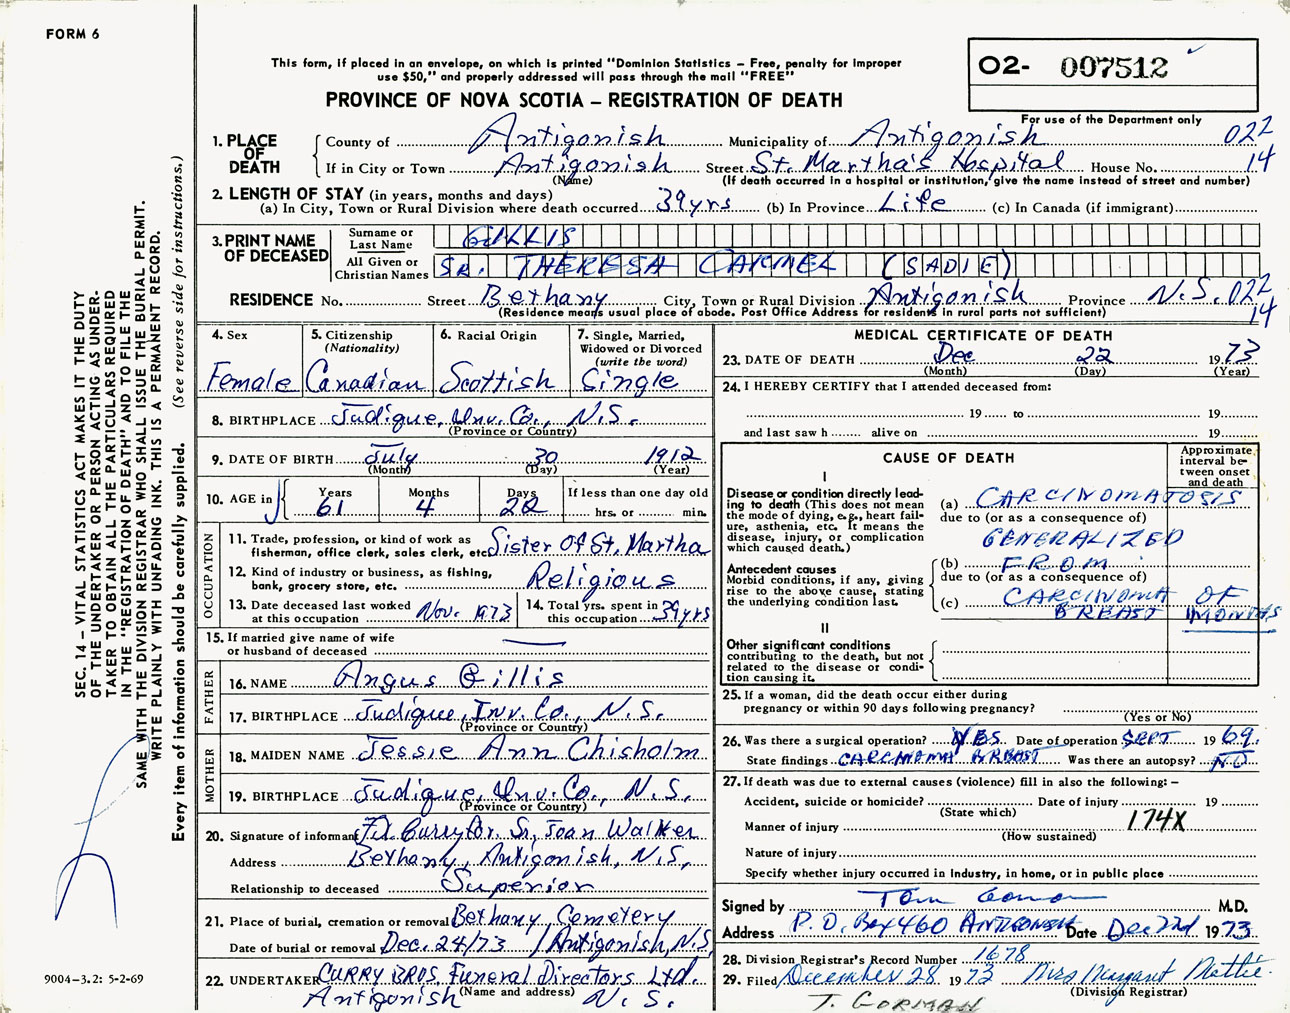 FORM 6
This form, if placed in an envelope, on which is printed "Dominion Statistics – Free, penalty for improper
use $50," and properly addressed will pass through the mail "FREE"
PROVINCE OF NOVA SCOTIA – REGISTRATION OF DEATH
O2- 007512
For use of the Department only
1. PLACE OF DEATH
County of Antigonish Municipality of Antigonish 022
If in City or Town Antigonish Street St. Martha's Hospital House No. 14
(Name) (If death occurred in a hospital or institution, give the name instead of street and number)
2. LENGTH OF STAY (in years, months and days)
(a) In City, Town or Rural Division where death occurred 39 yrs (b) In Province Life (c) In Canada (if immigrant)
3. PRINT NAME OF DECEASED
Surname or Last Name GILLIS
All Given or Christian Names SR. THERESA CARMEL (SADIE)
RESIDENCE No. Street Bethany City, Town or Rural Division Antigonish Province N.S. 022
(Residence means usual place of abode. Post Office Address for residents in rural parts not sufficient) 14
4. Sex
Female
5. Citizenship
(Nationality)
Canadian
6. Racial Origin
Scottish
7. Single, Married,
Widowed or Divorced
(write the word)
Single
8. BIRTHPLACE Judique, Inv. Co., N.S.
(Province or Country)
9. DATE OF BIRTH July 30 1912
(Month) (Day) (Year)
10. AGE in
Years Months Days If less than one day old
61 4 22 hrs. or min.
OCCUPATION
11. Trade, profession, or kind of work as
fisherman, office clerk, sales clerk, etc. Sister Of St. Martha
12. Kind of industry or business, as fishing,
bank, grocery store, etc. Religious
13. Date deceased last worked
at this occupation Nov. 1973
14. Total yrs. spent in
this occupation 39 yrs
15. If married give name of wife
or husband of deceased —
FATHER
16. NAME Angus Gillis
17. BIRTHPLACE Judique, Inv. Co., N.S.
(Province or Country)
MOTHER
18. MAIDEN NAME Jessie Ann Chisholm
19. BIRTHPLACE Judique, Inv. Co., N.S.
(Province or Country)
20. Signature of informant Curry for Sr. Joan Walker
Address Bethany, Antigonish, N.S.
Relationship to deceased Superior
21. Place of burial, cremation or removal Bethany Cemetery
Date of burial or removal Dec. 24/73 / Antigonish, N.S.
22. UNDERTAKER CURRY BROS. Funeral Directors Ltd.
(Name and address)
Antigonish N. S.
MEDICAL CERTIFICATE OF DEATH
23. DATE OF DEATH Dec 22 1973
(Month) (Day) (Year)
24. I HEREBY CERTIFY that I attended deceased from:
19 to 19
and last saw h alive on 19
CAUSE OF DEATH
Approximate interval between onset and death
I
Disease or condition directly leading to death (This does not mean the mode of dying, e.g., heart failure, asthenia, etc. It means the disease, injury, or complication which caused death.)
(a) CARCINOMATOSIS
due to (or as a consequence of)
GENERALIZED
Antecedent causes
Morbid conditions, if any, giving rise to the above cause, stating the underlying condition last.
(b) FROM
due to (or as a consequence of)
(c) CARCINOMA OF
BREAST MONTHS
II
Other significant conditions
contributing to the death, but not related to the disease or condition causing it.
25. If a woman, did the death occur either during
pregnancy or within 90 days following pregnancy?
(Yes or No)
26. Was there a surgical operation? YES Date of operation SEPT 1969.
State findings CARCINOMA BREAST Was there an autopsy? NO
27. If death was due to external causes (violence) fill in also the following: –
Accident, suicide or homicide? Date of injury 19
(State which)
Manner of injury 174X
(How sustained)
Nature of injury
Specify whether injury occurred in Industry, in home, or in public place
Signed by Tom Gorman M.D.
Address P.O. Box 460 ANTIGONISH Date Dec 22nd 1973
28. Division Registrar's Record Number 1678
29. Filed December 28 1973 Mrs Margaret Mattie
(Division Registrar)
T. GORMAN
SEC. 14 – VITAL STATISTICS ACT MAKES IT THE DUTY
OF THE UNDERTAKER OR PERSON ACTING AS UNDER-
TAKER TO OBTAIN ALL THE PARTICULARS REQUIRED
IN THE "REGISTRATION OF DEATH" AND TO FILE THE
SAME WITH THE DIVISION REGISTRAR WHO SHALL ISSUE THE BURIAL PERMIT.
WRITE PLAINLY WITH UNFADING INK. THIS IS A PERMANENT RECORD.
Every item of information should be carefully supplied. (See reverse side for instructions.)
9004–3.2: 5-2-69